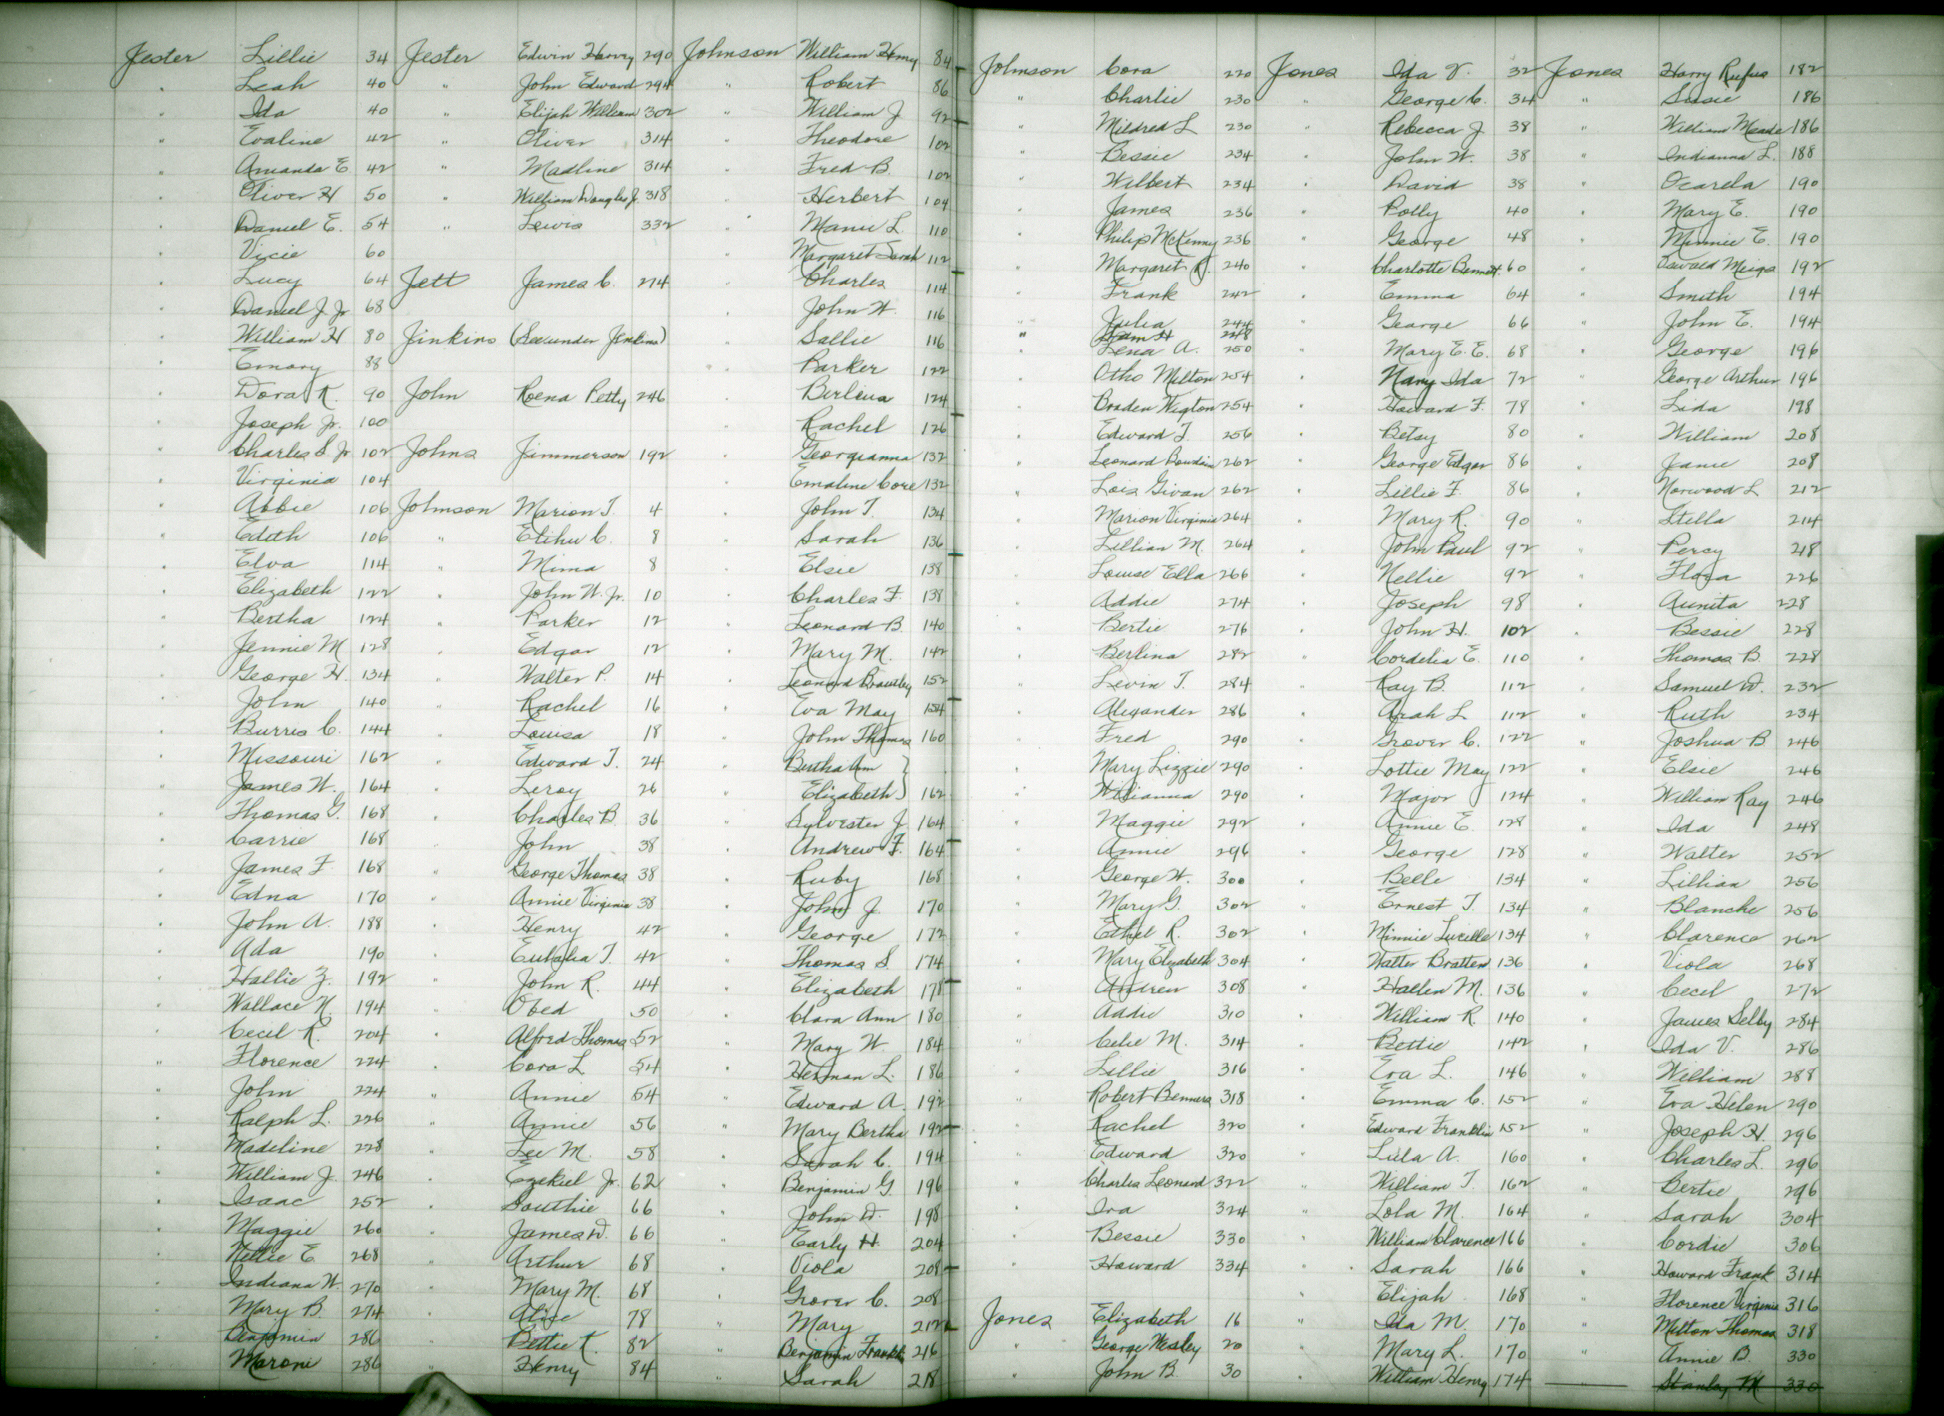 Jester Lillie 34
" Leah 40
" Ida 40
" Evaline 42
" Amanda E. 42
" Oliver H 50
" Daniel E. 54
" Vicie 60
" Lucy 64
" Daniel J. Jr 68
" William H 80
" Emory 88
" Dora K. 90
" Joseph Jr. 100
" Charles S. Jr 102
" Virginia 104
" Abbie 106
" Edith 106
" Elva 114
" Elizabeth 122
" Bertha 124
" Jennie M 128
" George H. 134
" John 140
" Burris C. 144
" Missouri 162
" James W. 164
" Thomas G. 168
" Carrie 168
" James F 168
" Edna 170
" John A. 188
" Ada 190
" Hallie Z. 192
" Wallace N. 194
" Cecil R. 204
" Florence 224
" John 224
" Ralph L. 226
" Madeline 228
" William J. 246
" Isaac 252
" Maggie 260
" Nellie E. 268
" Indiana W. 270
" Mary B. 274
" Benjamin 286
" Maronie 286
Jester Edwin Harvey 290
" John Edward 294
" Elijah William 302
" Oliver 314
" Madline 314
" William Douglas J. 318
" Lewis 332
Jett James C. 274
Jinkins (See under Jenkins)
John Roena Petty 246
Johns Jimmerson 192
Johnson Marion T. 4
" Elihu C. 8
" Mima 8
" John W. Jr. 10
" Parker 12
" Edgar 12
" Walter P. 14
" Rachel 16
" Louisa 18
" Edward T. 24
" Leroy 26
" Charles B 36
" John 38
" George Thomas 38
" Annie Virginia 38
" Henry 42
" Eulalia T. 42
" John R. 44
" Obed 50
" Alfred Thomas 52
" Cora L 54
" Annie 54
" Annie 56
" Lee M. 58
" Ezekiel Jr. 62
" Southie 66
" James D. 66
" Arthur 68
" Mary M. 68
" Alice 78
" Bettie K. 82
" Henry 84
Johnson William Henry 84
" Robert 86
" William J 92
" Theodore 102
" Fred B. 102
" Herbert 104
" Mamie L. 110
" Margaret Sarah 112
" Charles 114
" John W. 116
" Sallie 116
" Parker 122
" Berlena 124
" Rachel 126
" Georgianna 132
" Emaline Core 132
" John T. 134
" Sarah 136
" Elsie 138
" Charles F. 138
" Leonard B. 140
" Mary M. 142
" Leonard Brantley 152
" Eva May 154
" John Thomas 160
" Bertha Ann }
" Elizabeth } 162
" Sylvester J. 164
" Andrew F. 164
" Ruby 168
" John J. 170
" George 172
" Thomas S. 174
" Elizabeth 178
" Clara Ann 180
" Mary W. 184
" Herman L. 186
" Edward A. 192
" Mary Bertha 192
" Sarah C. 194
" Benjamin G. 196
" John D. 198
" Early H. 204
" Viola 208
" Grover C. 208
" Mary 212
" Benjamin Franklin 216
" Sarah 218
Johnson Cora 220
" Charlie 230
" Mildred L 230
" Bessie 234
" Wilbert 234
" James 236
" Philip McKenny 236
" Margaret J. 240
" Frank 242
" Julia 244
" Sam H 248
" Lena A. 250
" Otho Milton 254
" Braden Wigton 254
" Edward T. 256
" Leonard Bowdoin 262
" Lois Givan 262
" Marion Virginia 264
" Lillian M. 264
" Louise Ella 266
" Addie 274
" Bertie 276
" Berlina 282
" Levin T. 284
" Alexander 286
" Fred 290
" Mary Lizzie 290
" Willianna 290
" Maggie 292
" Annie 296
" George W. 300
" Mary G. 302
" Ethel R. 302
" Mary Elizabeth 304
" Andrew 308
" Addie 310
" Celie M. 314
" Lillie 316
" Robert Benners 318
" Rachel 320
" Edward 320
" Charles Leonard 322
" Ira 324
" Bessie 330
" Howard 334
Jones Elizabeth 16
" George Wesley 20
" John B. 30
Jones Ida V. 32
" George C. 34
" Rebecca J. 38
" John W. 38
" David 38
" Polly 40
" George 48
" Charlotte Bennett 60
" Emma 64
" George 66
" Mary E. E. 68
" Mary Ida 72
" Howard F. 78
" Betsy 80
" George Edgar 86
" Lillie F. 86
" Mary R. 90
" John Paul 92
" Nellie 92
" Joseph 98
" John H. 102
" Cordelia E. 110
" Ray B. 112
" Arah L 112
" Grover C. 122
" Lottie May 122
" Major 124
" Annie E. 128
" George 128
" Belle 134
" Ernest T. 134
" Minnie Lucille 134
" Walter Bratten 136
" Hallen M. 136
" William R. 140
" Bettie 142
" Eva L. 146
" Emma C. 152
" Edward Franklin 152
" Lula A. 160
" William T. 162
" Lola M. 164
" William Clarence 166
" Sarah 166
" Elijah 168
" Ida M. 170
" Mary L. 170
" William Henry 174
Jones Harry Rufus 182
" Susie 186
" William Meade 186
" Indianna L. 188
" Ocarela 190
" Mary E. 190
" Minnie E. 190
" Oswald Meigs 192
" Smith 194
" John E. 194
" George 196
" George Arthur 196
" Lida 198
" William 208
" Janie 208
" Norwood L 212
" Stella 214
" Percy 218
" Flora 226
" Aunita 228
" Bessie 228
" Thomas B. 228
" Samuel W. 232
" Ruth 234
" Joshua B 246
" Elsie 246
" William Ray 246
" Ida 248
" Walter 252
" Lillian 256
" Blanche 256
" Clarence 262
" Viola 268
" Cecil 272
" James Selby 284
" Ida V. 286
" William 288
" Eva Helen 290
" Joseph H. 296
" Charles L. 296
" Bertie 296
" Sarah 304
" Cordie 306
" Howard Frank 314
" Florence Virginia 316
" Milton Thomas 318
" Annie B. 330
Stanley M 330